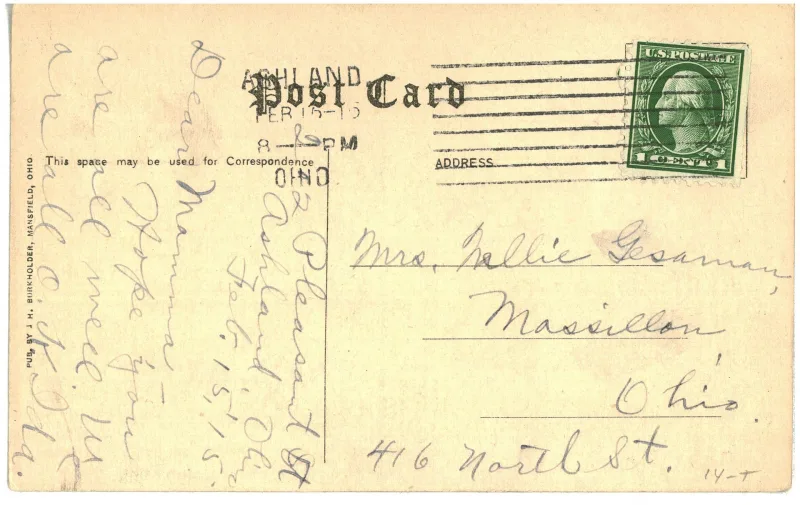 Post Card
ASHLAND
FEB 15-15
8 — PM
OHIO
U.S. POSTAGE
1 CENT 1
This space may be used for Correspondence
ADDRESS
PUB. BY J. H. BURKHOLDER, MANSFIELD, OHIO
2 Pleasant St
Ashland, Ohio
Feb. 15, '15.
Dear Mamma
Hope you
are all well. We
are all O.K. Ida.
Mrs. Nellie Gesaman,
Massillon,
Ohio.
416 North St.
14-T